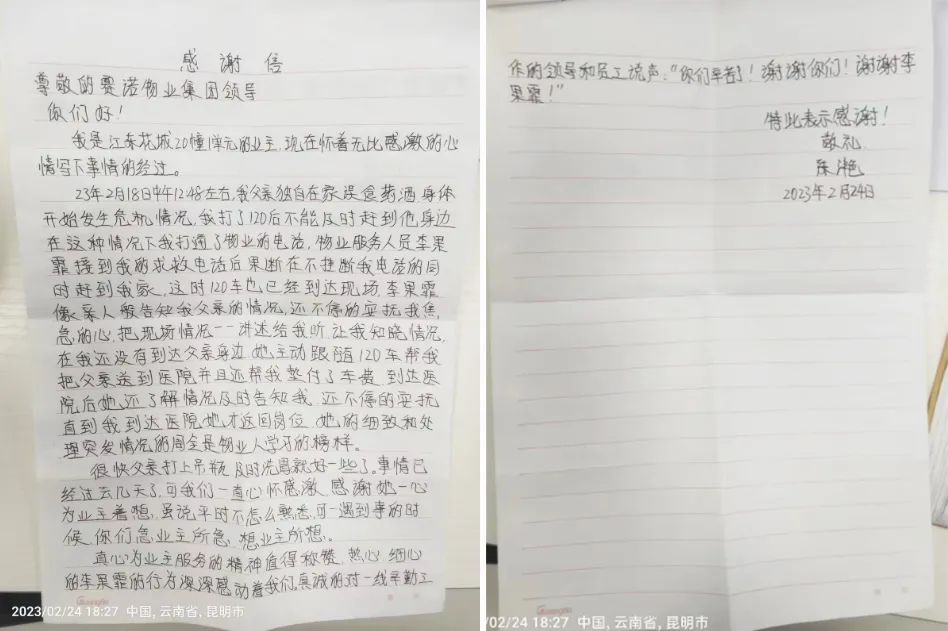 感谢信
尊敬的赛诺物业集团领导
你们好!
我是江东花城20幢1单元的业主,现在怀着无比感激的心
情写下事情的经过。
23年2月18日中午12:48左右,我父亲独自在家误食药酒,身体
开始发生危机情况,我打了120后不能及时赶到他身边
在这种情况下我打通了物业的电话,物业服务人员李果
霏接到我的求救电话后果断在不挂断我电话的同
时赶到我家,这时120车也已经到达现场,李果霏
像亲人般告知我父亲的情况,还不停的安抚我焦
急的心,把现场情况一一讲述给我听,让我知晓情况,
在我还没有到达父亲身边,她主动跟随120车帮我
把父亲送到医院并且还帮我垫付了车费,到达医
院后她还了解情况及时告知我,还不停的安抚
直到我到达医院她才返回岗位,她的细致和处
理突发情况的周全是物业人学习的榜样。
很快父亲打上吊瓶,及时洗胃就好一些了。事情已
经过去几天了,可我们一直心怀感激,感谢她一心
为业主着想,虽说平时不怎么熟悉,可一遇到事的时
候,你们急业主所急,想业主所想。
真心为业主服务的精神值得称赞,热心、细心
的李果霏的行为深深感动着我们,真诚的对一线辛勤工
Guangbo
2023/02/24 18:27 中国,云南省,昆明市
作的领导和员工说声:“你们辛苦了!谢谢你们!谢谢李
果霏!”
特此表示感谢!
敬礼
陈滟
2023年2月24日
Guangbo
/02/24 18:27 中国,云南省,昆明市